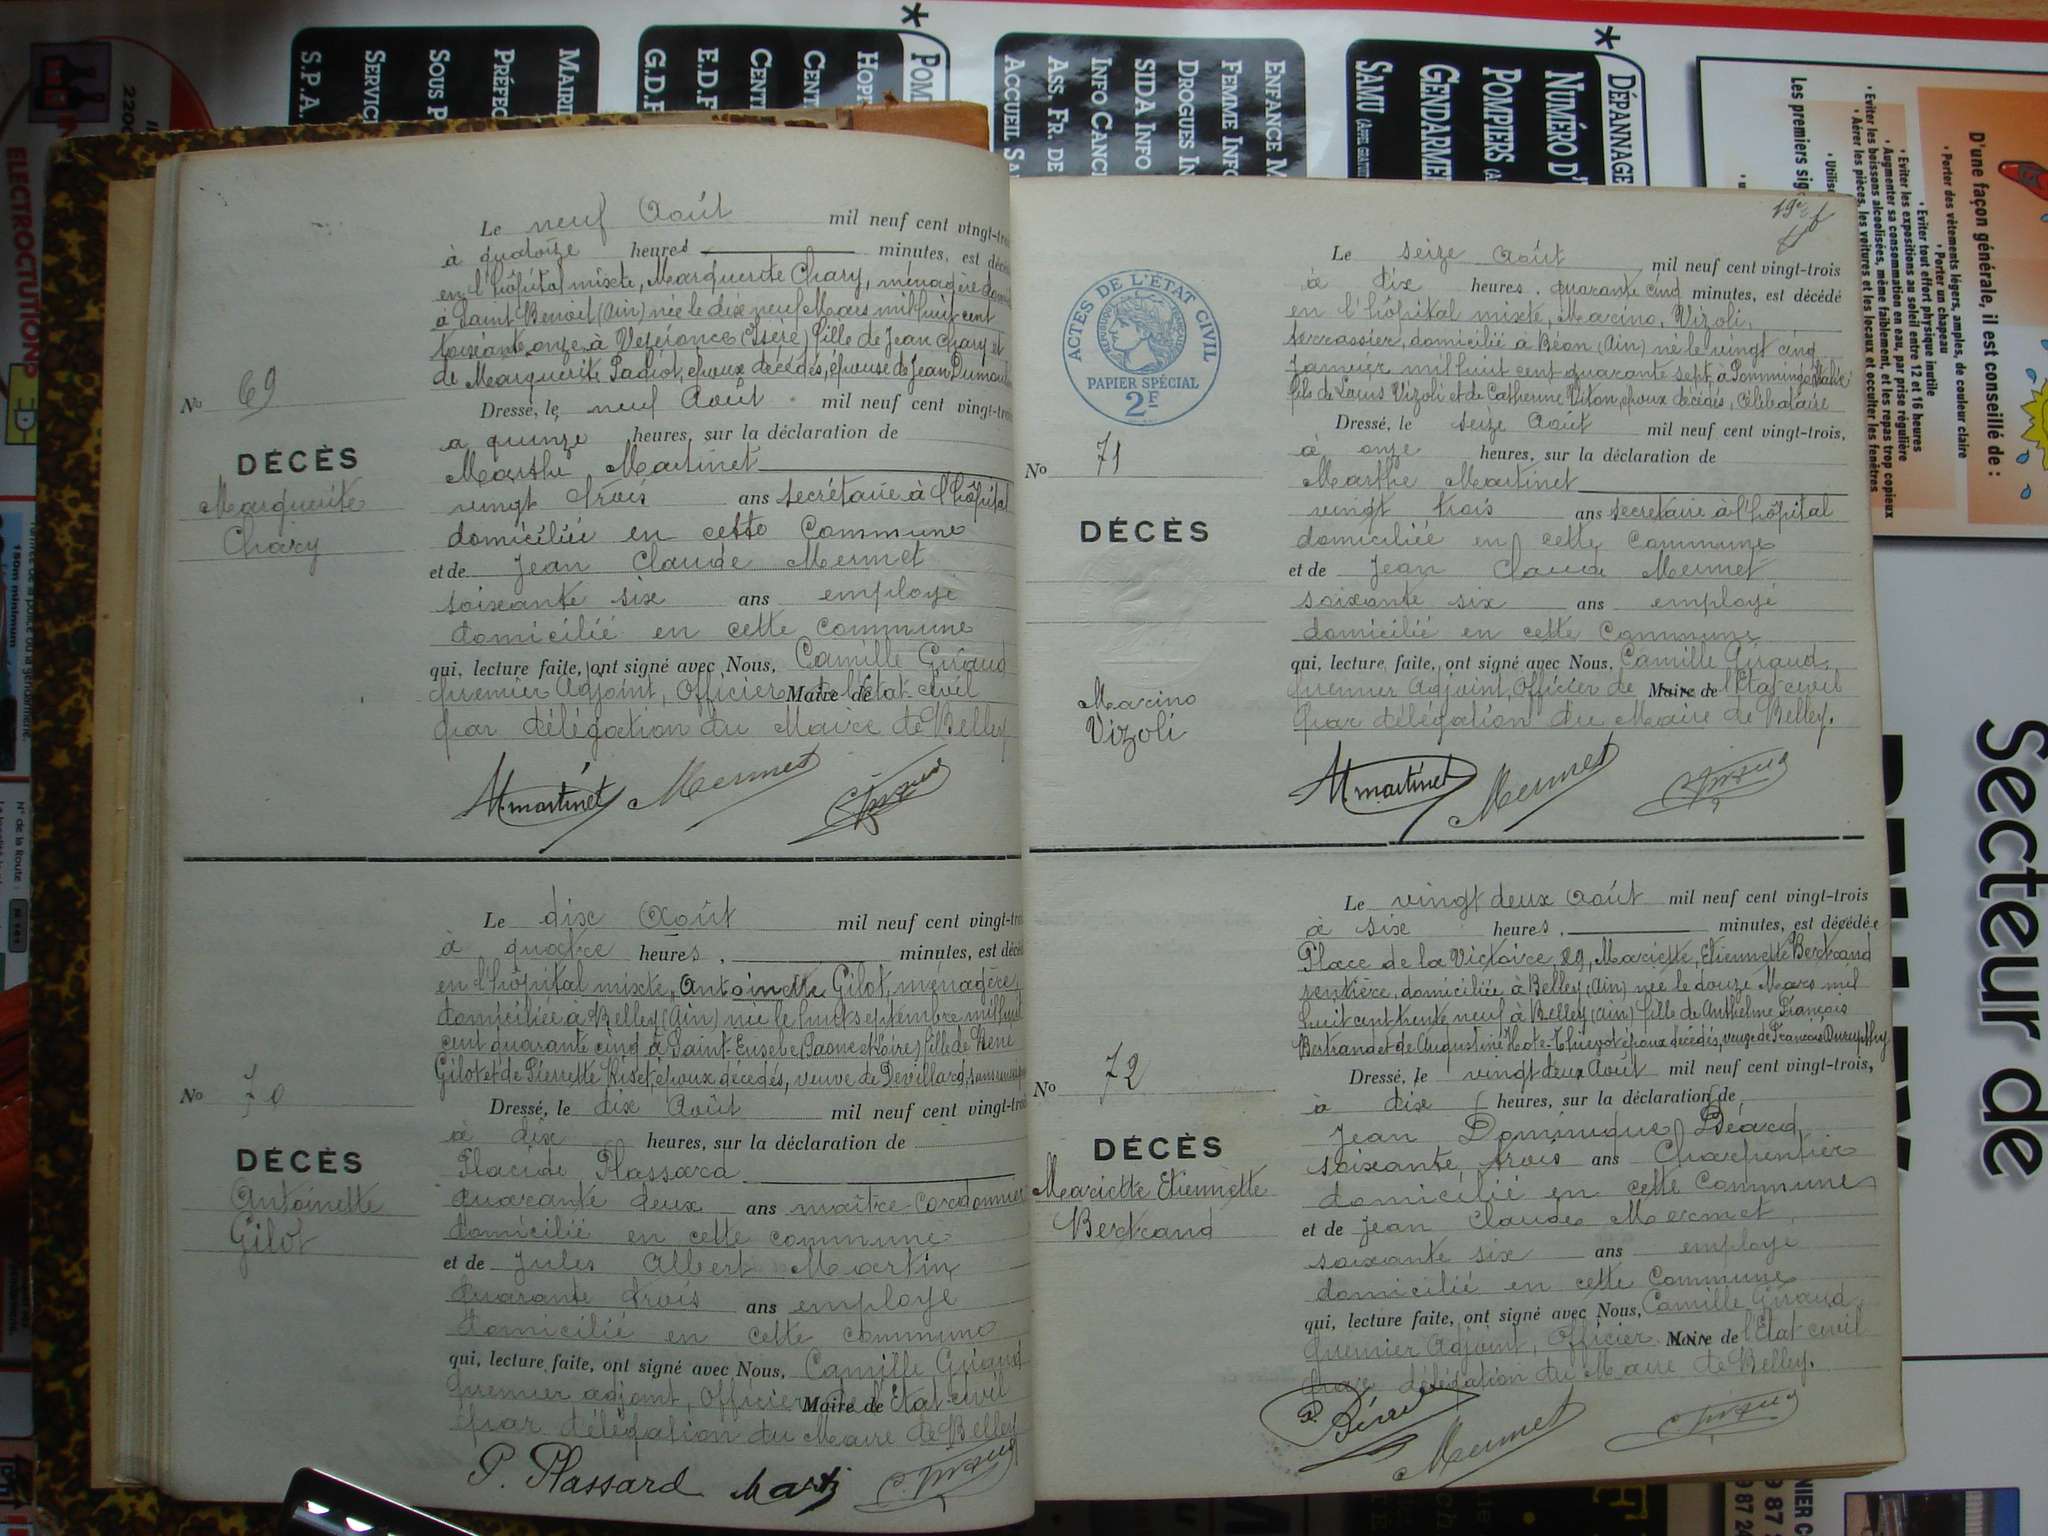 MAIRIE
PRÉFEC
SOUS P
SERVIC
S.P.A.
POM
HOPI
CENT
CENT
E.D.F
G.D.F
ENFANCE M
FEMME INFO
DROGUES IN
SIDA INFO
INFO CANC
ASS. FR. DE
ACCUEIL SA
DÉPANNAGE
NUMÉRO D'
POMPIERS
GENDARME
SAMU (APPEL GRATUIT
D'une façon générale, il est conseillé de :
• Porter des vêtements légers, amples, de couleur claire
• Porter un chapeau
• Eviter tout effort physique inutile
• Eviter les expositions au soleil entre 12 et 16 heures
• Augmenter sa consommation en eau, par prise régulière
• Eviter les boissons alcoolisées, même faiblement, et les repas trop copieux
• Aérer les pièces, les voitures et les locaux et occulter les fenêtres
Les premiers sig
• Utilise
ELECTROCUTION
Secteur de
Le neuf Août mil neuf cent vingt-trois
à quatorze heures minutes, est décé
en l'hôpital mixte, Marguerite Chary, ménagère domi
à Saint Benoit (Ain) née le dix neuf Mars mil huit cent
soixante onze à Vézéronce (Isère) fille de Jean Chary et
de Marguerite Padiot, époux décédés, épouse de Jean Dumoulin
No 69
DÉCÈS
Marguerite
Chary
Dressé, le neuf Août mil neuf cent vingt-trois
à quinze heures, sur la déclaration de
Marthe Martinet
vingt trois ans secrétaire à l'hôpital
domiciliée en cette Commune
et de Jean Claude Mermet
soixante six ans employé
domicilié en cette commune
qui, lecture faite, ont signé avec Nous, Camille Giraud
premier Adjoint, Officier Maire de l'Etat civil
par délégation du Maire de Belley
M. martinet Mermet
Le dix Août mil neuf cent vingt-trois
à quatre heures, minutes, est décé
en l'hôpital mixte, Antoinette Gilot, ménagère,
domiciliée à Belley (Ain) née le huit septembre mil huit
cent quarante cinq à Saint Eusebe (Saone et Loire) fille de René
Gilot et de Pierrette Riset, époux décédés, veuve de Devillard,
No 70
DÉCÈS
Antoinette
Gilot
Dressé, le dix Août mil neuf cent vingt-trois
à dix heures, sur la déclaration de
Placide Plassard
quarante deux ans maître cordonnier
domicilié en cette commune
et de Jules Albert Martin
quarante trois ans employé
domicilié en cette commune
qui, lecture faite, ont signé avec Nous, Camille Giraud
premier adjoint, Officier Maire de Etat civil
par délégation du Maire de Belley
P. Plassard
ACTES DE L'ÉTAT CIVIL
PAPIER SPÉCIAL
2F
Le seize Août mil neuf cent vingt-trois
à dix heures, quarante cinq minutes, est décédé
en l'hôpital mixte, Marino, Vizoli,
terrassier, domicilié à Béon (Ain) né le vingt cinq
Janvier mil huit cent quarante sept, à
fils de Louis Vizoli et de Catherine Viton, époux décédés, Célibataire
No 71
DÉCÈS
Marino
Vizoli
Dressé, le seize Août mil neuf cent vingt-trois,
à onze heures, sur la déclaration de
Marthe Martinet
vingt trois ans secrétaire à l'hôpital
domiciliée en cette commune
et de Jean Claude Mermet
soixante six ans employé
domicilié en cette Commune
qui, lecture faite, ont signé avec Nous, Camille Giraud,
premier Adjoint, Officier de Maire de l'Etat civil
par délégation du Maire de Belley.
M. martinet Mermet
Le vingt deux Août mil neuf cent vingt-trois
à six heures, minutes, est décédée
Place de la Victoire, 29, Mariette, Etiennette Bertrand
rentière, domiciliée à Belley (Ain) née le douze Mars mil
huit cent trente neuf à Belley (Ain) fille de Anthelme François
Bertrand et de Augustine époux décédés, veuve de François
No 72
DÉCÈS
Mariette Etiennette
Bertrand
Dressé, le vingt deux Août mil neuf cent vingt-trois,
à dix heures, sur la déclaration de
Jean Dominique Béard
soixante trois ans Charpentier
domicilié en cette Commune
et de Jean Claude Mermet
soixante six ans employé
domicilié en cette Commune
qui, lecture faite, ont signé avec Nous, Camille Giraud
premier Adjoint, Officier Maire de l'Etat civil
par délégation du Maire de Belley.
Mermet